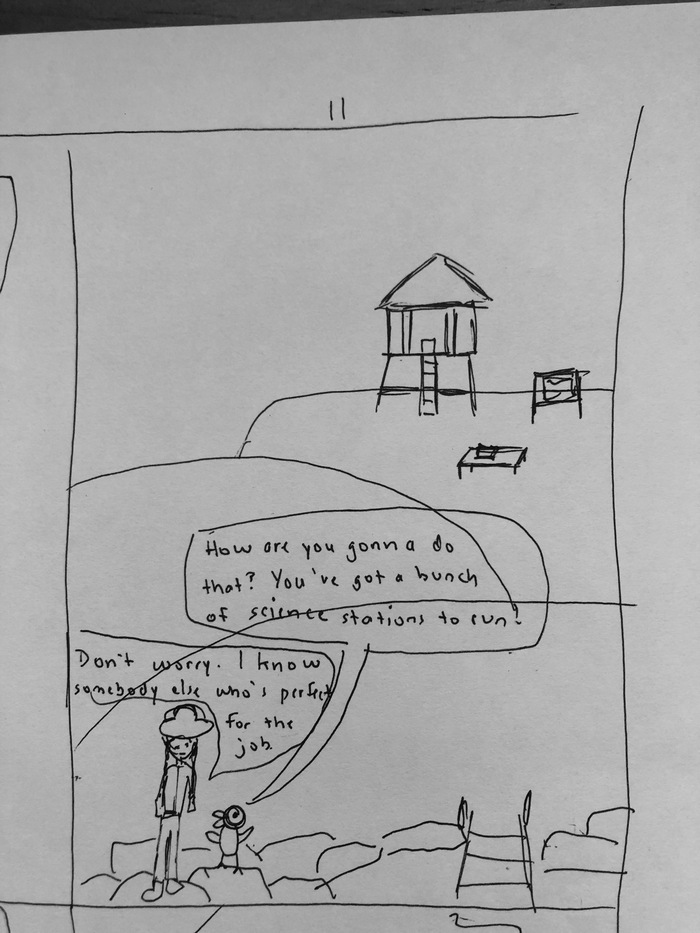 11
How are you gonna do
that? You've got a bunch
of science stations to run!
Don't worry. I know
somebody else who's perfect
for the
job.